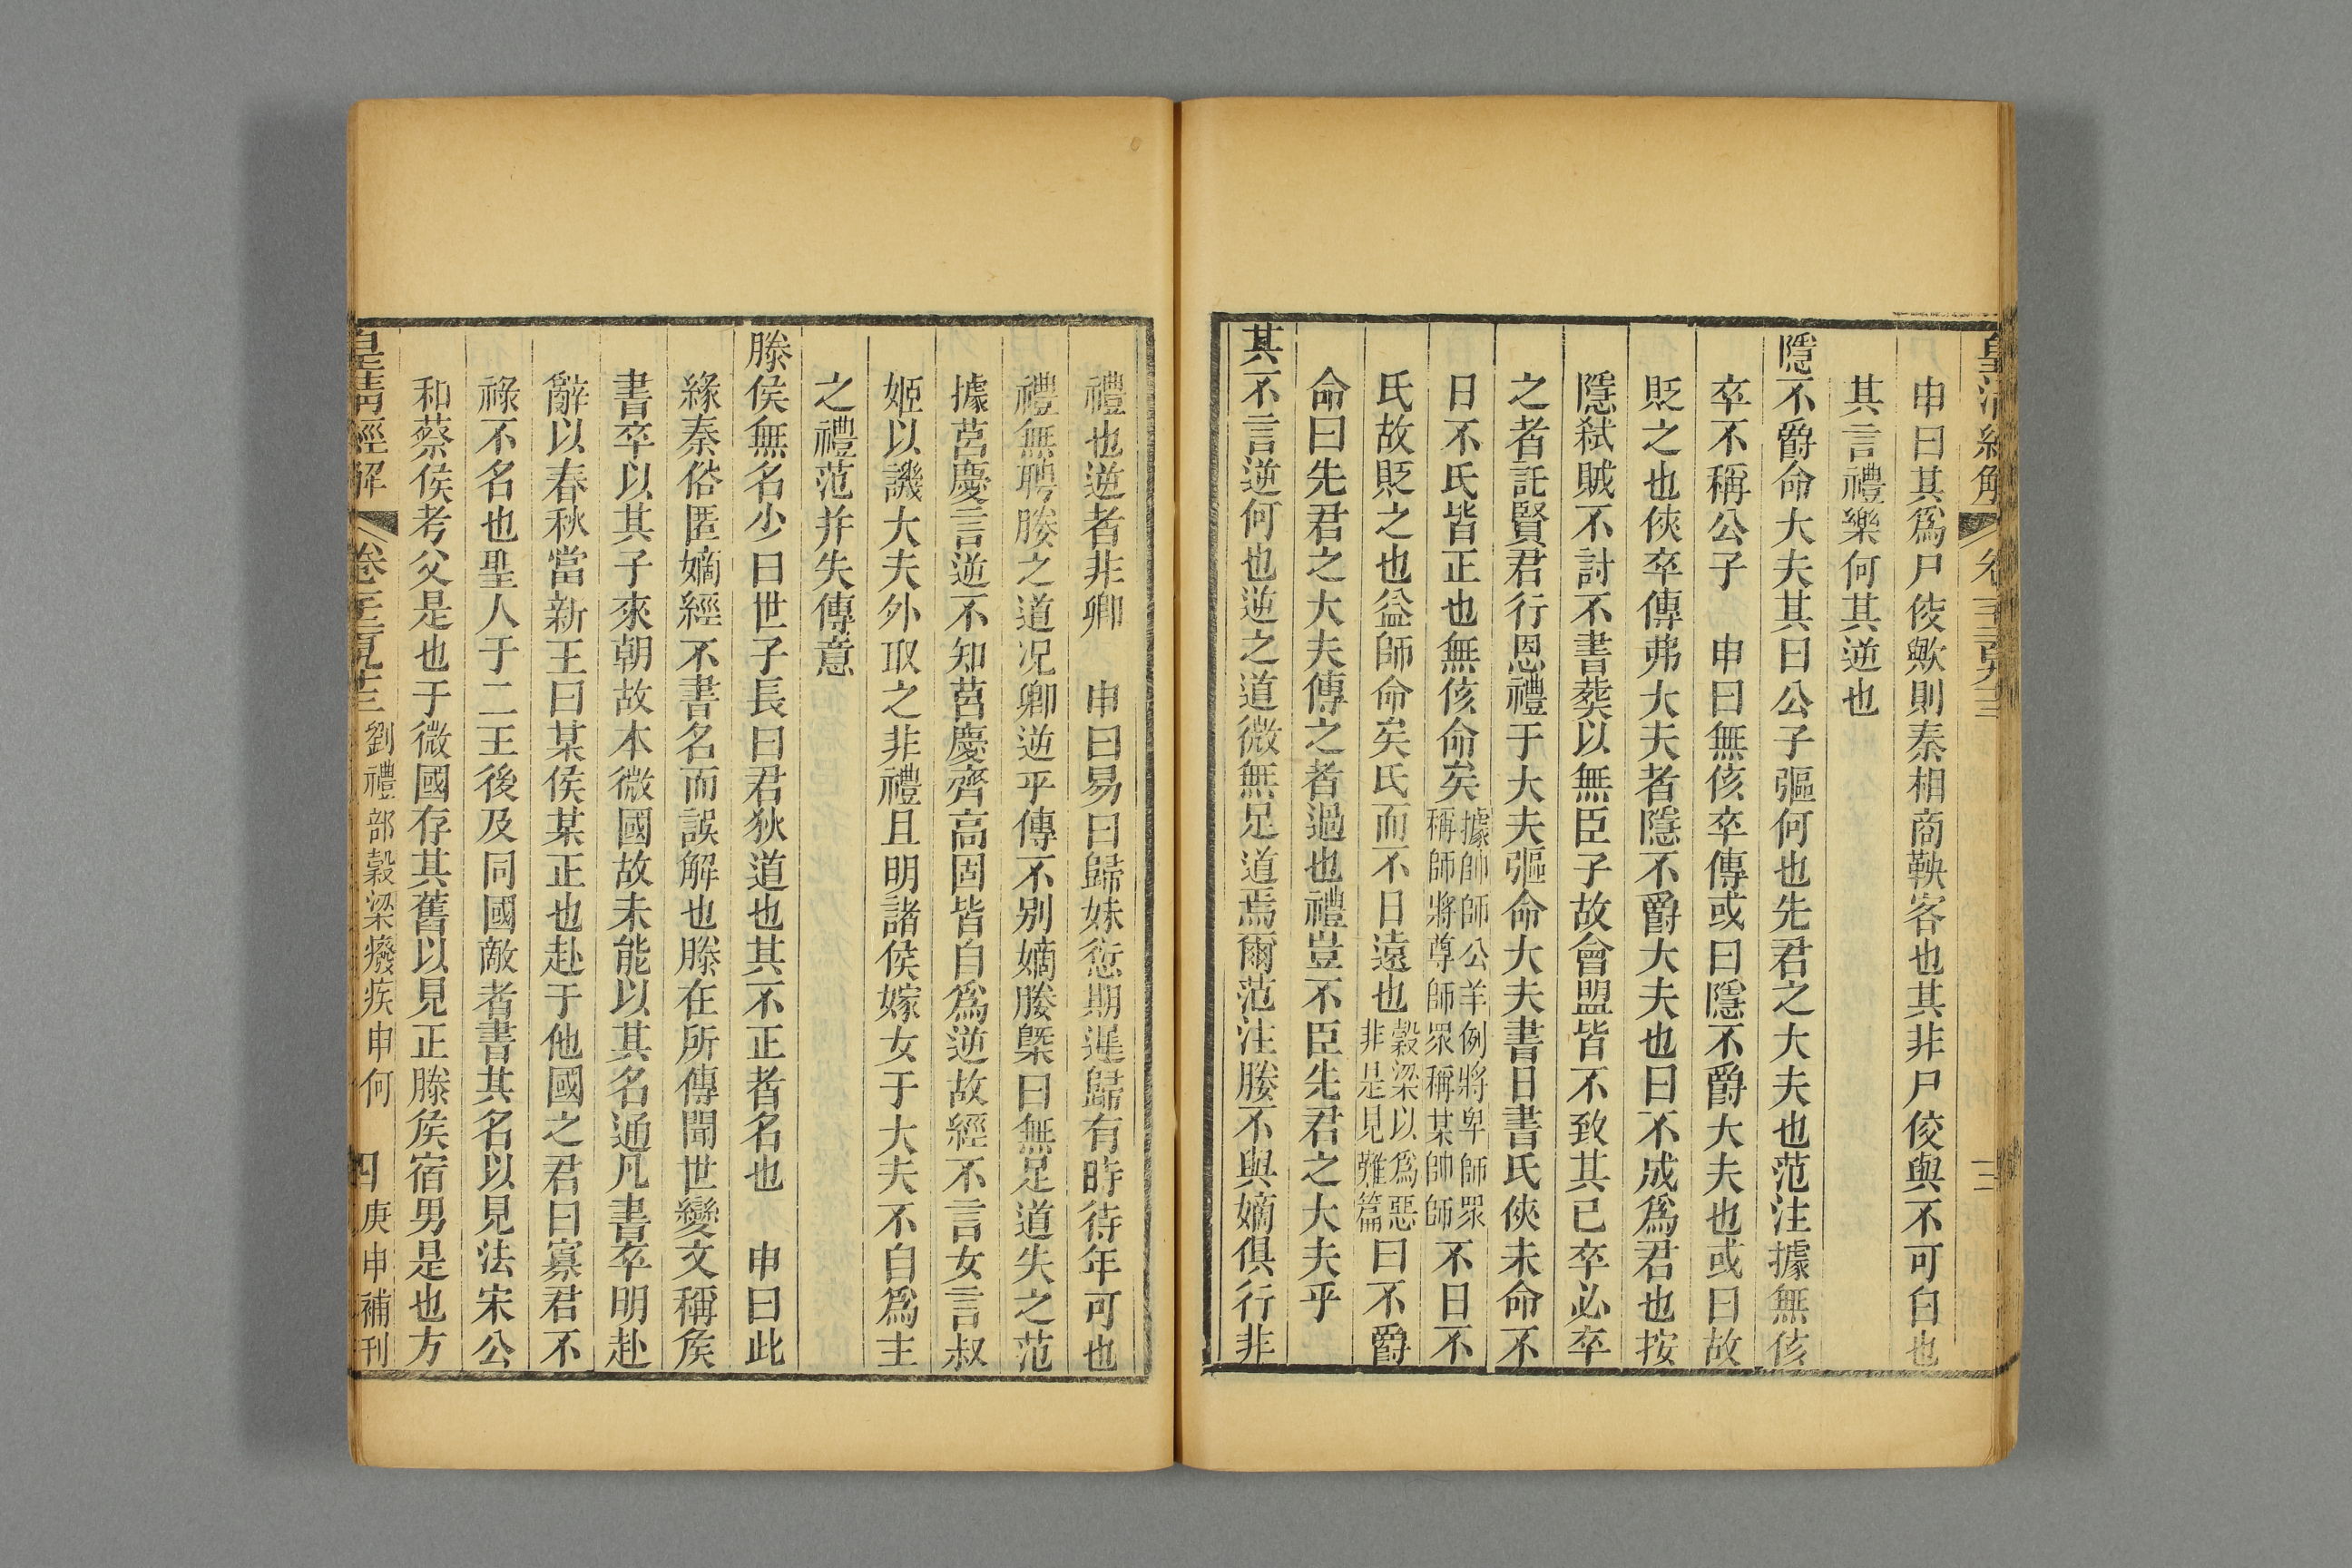 皇清經解 卷千二百九十三 三
申曰其爲尸佼歟則秦相商鞅客也其非尸佼與不可白也
其言禮樂何其逆也
隱不爵命大夫其曰公子彄何也先君之大夫也范注據無侅
卒不稱公子 申曰無侅卒傳或曰隱不爵大夫也或曰故
貶之也俠卒傳弗大夫者隱不爵大夫也曰不成爲君也按
隱弑賊不討不書葬以無臣子故會盟皆不致其已卒必卒
之者託賢君行恩禮于大夫彄命大夫書日書氏俠未命不
日不氏皆正也無侅命矣據帥師公羊例將卑師眾稱師將尊師眾稱某帥師不日不
氏故貶之也益師命矣氏而不日遠也穀梁以爲惡非是見難篇曰不爵
命曰先君之大夫傳之者過也禮豈不臣先君之大夫乎
其不言逆何也逆之道微無足道焉爾范注媵不與嫡俱行非
禮也逆者非卿 申曰易曰歸妹愆期遲歸有時待年可也
禮無聘媵之道况卿逆乎傳不别嫡媵槩曰無足道失之范
據莒慶言逆不知莒慶齊高固皆自爲逆故經不言女言叔
姬以譏大夫外取之非禮且明諸侯嫁女于大夫不自爲主
之禮范并失傳意
滕侯無名少曰世子長曰君狄道也其不正者名也 申曰此
緣秦俗匿嫡經不書名而誤解也滕在所傳聞世變文稱侯
書卒以其子來朝故本微國故未能以其名通凡書卒明赴
辭以春秋當新王曰某侯某正也赴于他國之君曰寡君不
祿不名也聖人于二王後及同國敵者書其名以見法宋公
和蔡侯考父是也于微國存其舊以見正滕侯宿男是也方
皇清經解 卷千二百九十三 劉禮部穀梁癈疾申何 四 庚申補刊